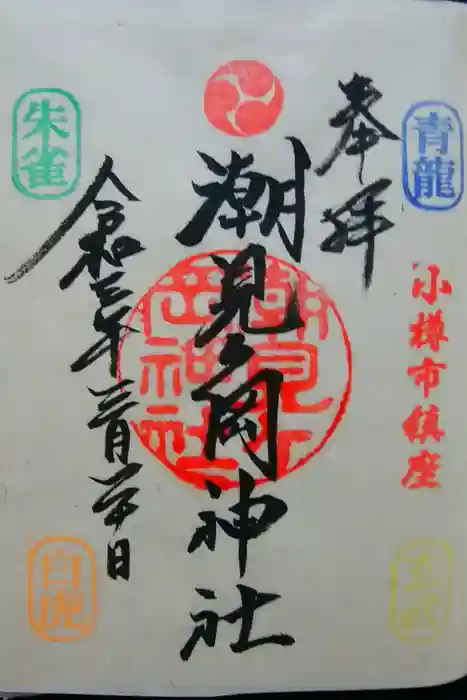 奉拝
青龍
小樽市鎮座
玄武
潮見ヶ岡神社
潮見ヶ岡神社
朱雀
令和三年
白虎